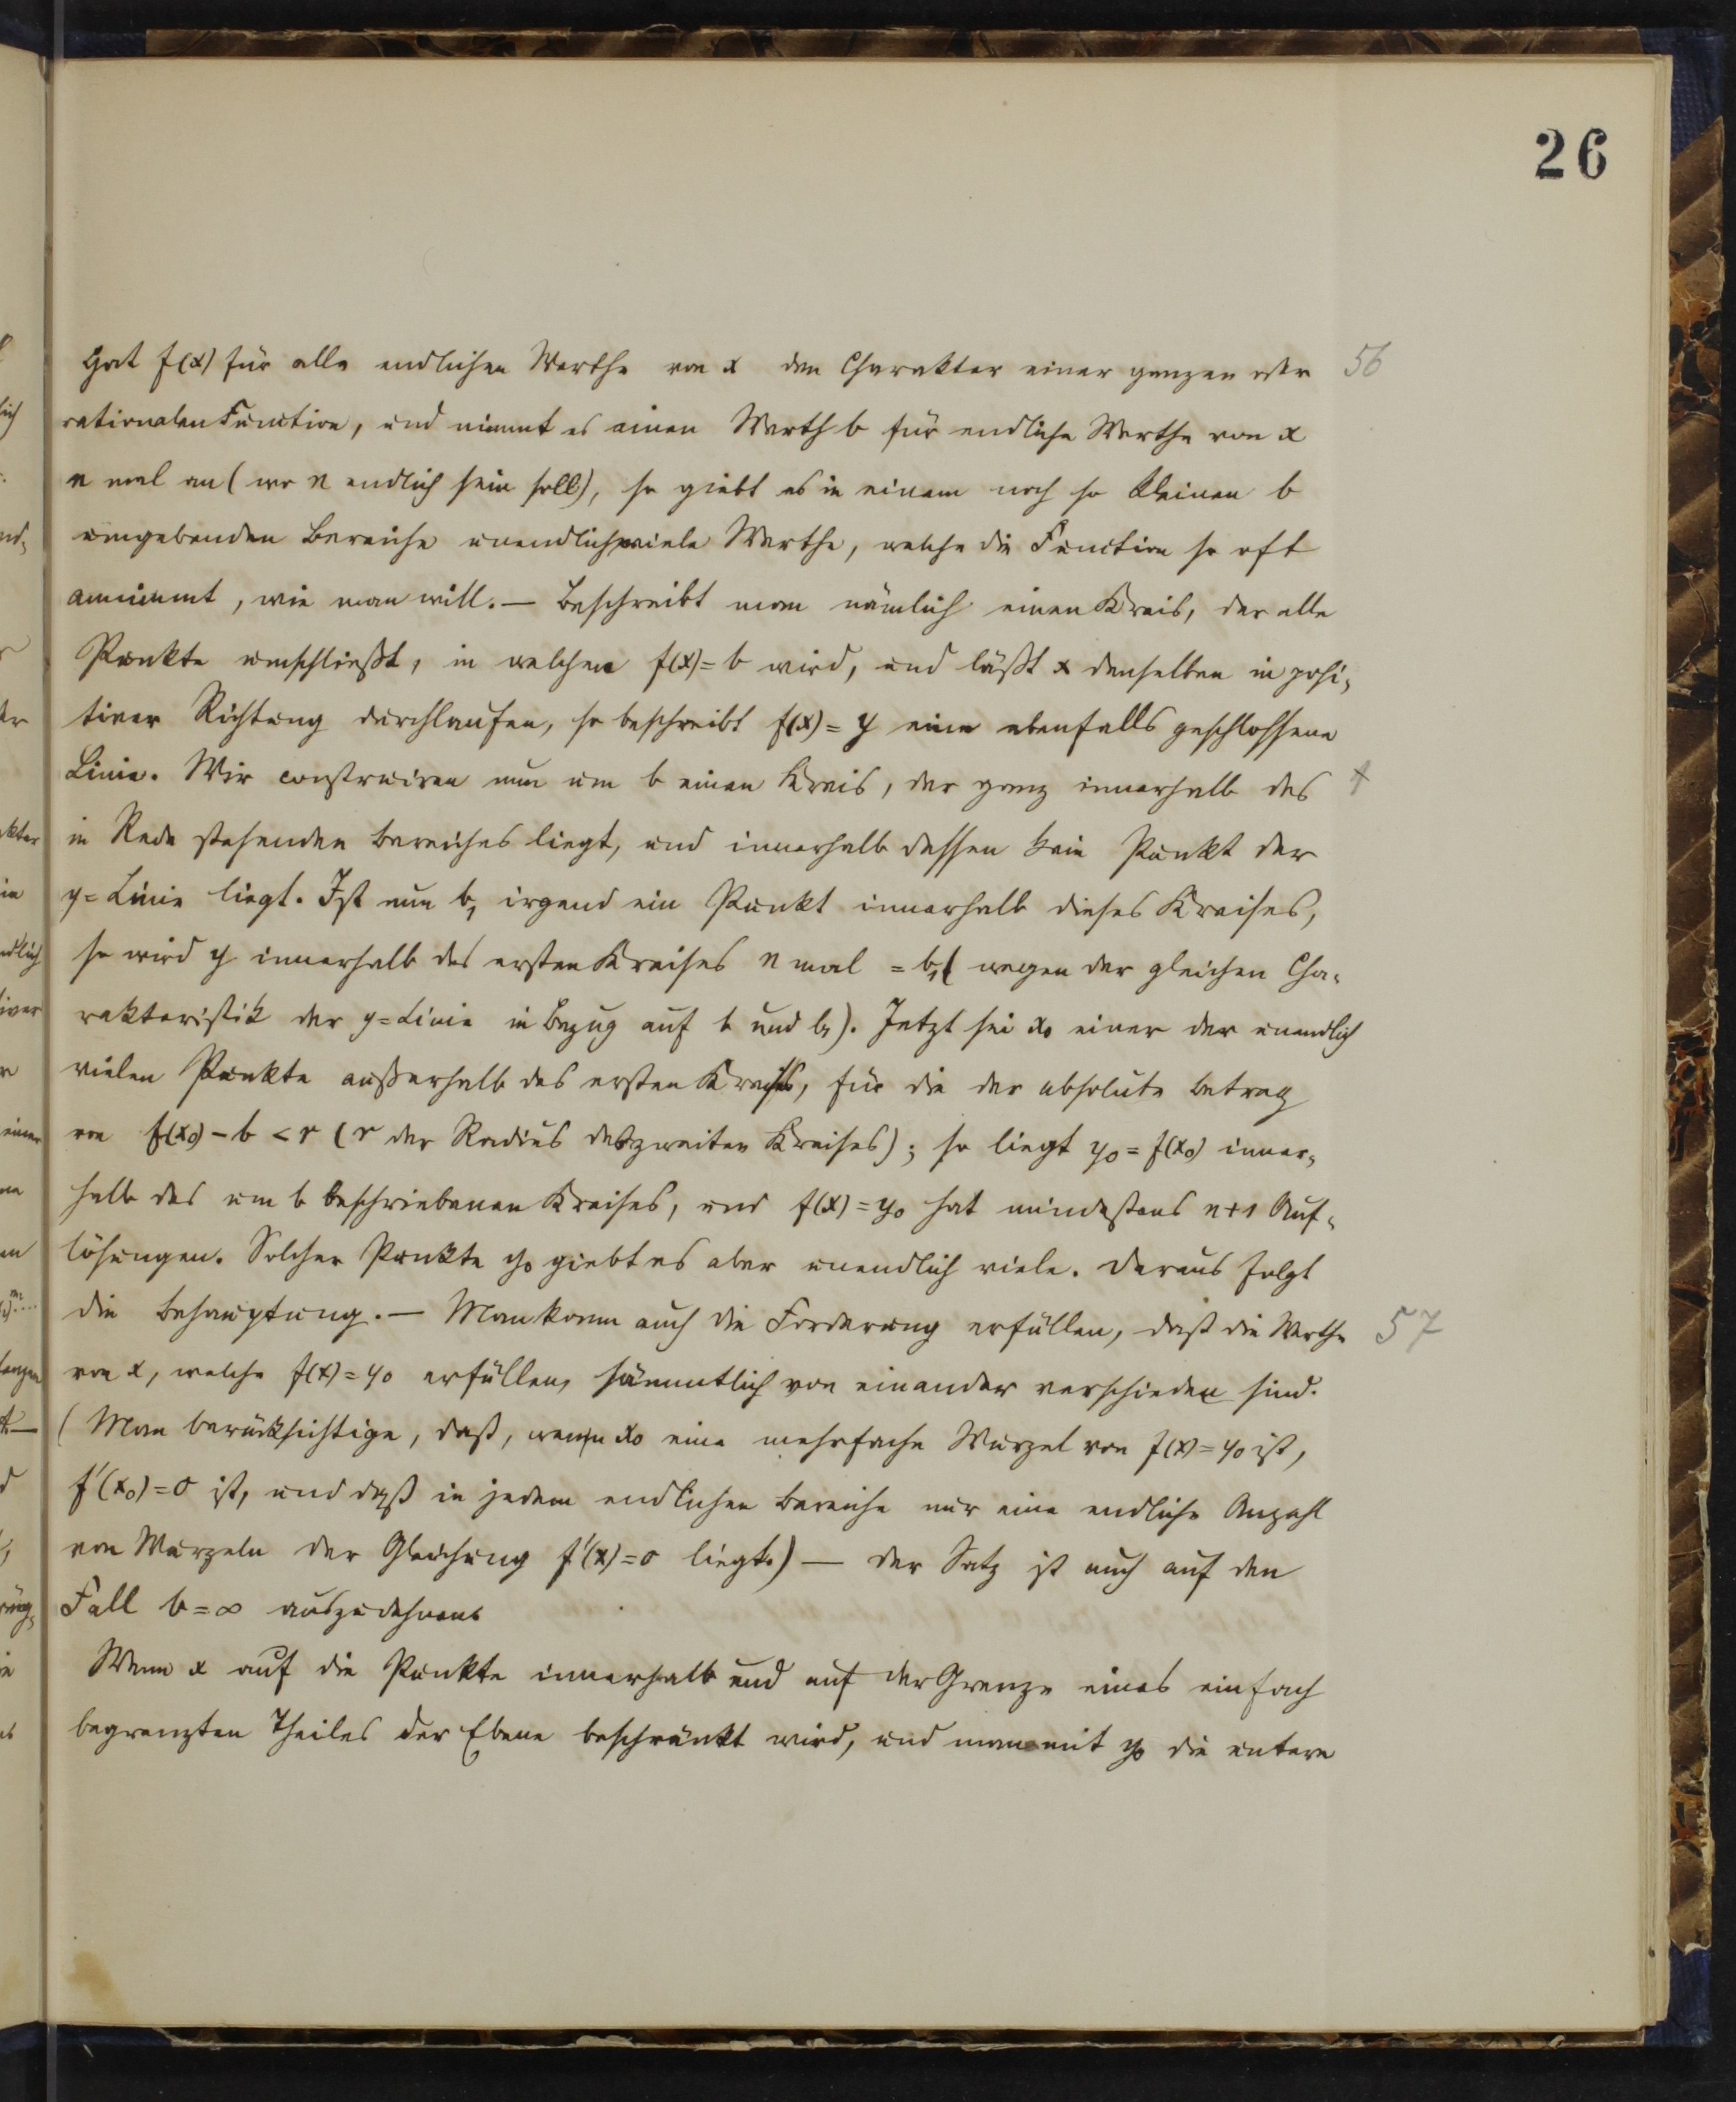 26
Hat f(x) für alle endlichen Werthe von x den Charakter einer ganzen oder 56
rationalen Function, und nimmt es einen Werth b für endliche Werthe von x
n mal an (wo n endlich sein soll), so giebt es in einem noch so kleinen b
umgebenden Bereiche unendlichviele Werthe, welche die Function so oft
annimmt, wie man will. — Beschreibt man nämlich einen Kreis, der alle
Punkte umschließt, in welchen f(x) = b wird, und läßt x denselben in posi-
tiver Richtung durchlaufen, so beschreibt f(x) = y eine ebenfalls geschlossene
Linie. Wir construiren nun um b einen Kreis, der ganz innerhalb des
in Rede stehenden Bereiches liegt, und innerhalb dessen kein Punkt der
y=Linie liegt. Ist nun b₁ irgend ein Punkt innerhalb dieses Kreises,
so wird y innerhalb des ersten Kreises n mal = b₁ (wegen der gleichen Cha-
rakteristik der y=Linie in Bezug auf b und b₁). Jetzt sei x₀ einer der unendlich
vielen Punkte außerhalb des ersten Kreises, für die der absolute Betrag
von f(x₀) – b < r (r der Radius des zweiten Kreises); so liegt y₀ = f(x₀) inner-
halb des um b beschriebenen Kreises, und f(x) = y₀ hat mindestens n+1 Auf-
lösungen. Solcher Punkte y₀ giebt es aber unendlich viele. Daraus folgt
die Behauptung. — Man kann auch die Forderung erfüllen, daß die Werthe 57
von x, welche f(x) = y₀ erfüllen, sämmtlich von einander verschieden sind.
(Man berücksichtige, daß, wenn x₀ eine mehrfache Wurzel von f(x) = y₀ ist,
f'(x₀) = 0 ist, und daß in jedem endlichen Bereiche nur eine endliche Anzahl
von Wurzeln der Gleichung f'(x) = 0 liegt.) — Der Satz ist auch auf den
Fall b = ∞ auszudehnen.
Wenn x auf die Punkte innerhalb und auf der Grenze eines einfach
begrenzten Theiles der Ebene beschränkt wird, und man mit y₀ die untere